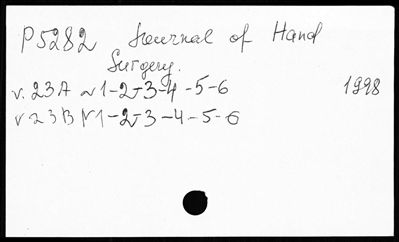 P5282 Journal of Hand
Surgery.
v. 23A N 1-2-3-4-5-6 1998
v 23B N 1-2-3-4-5-6